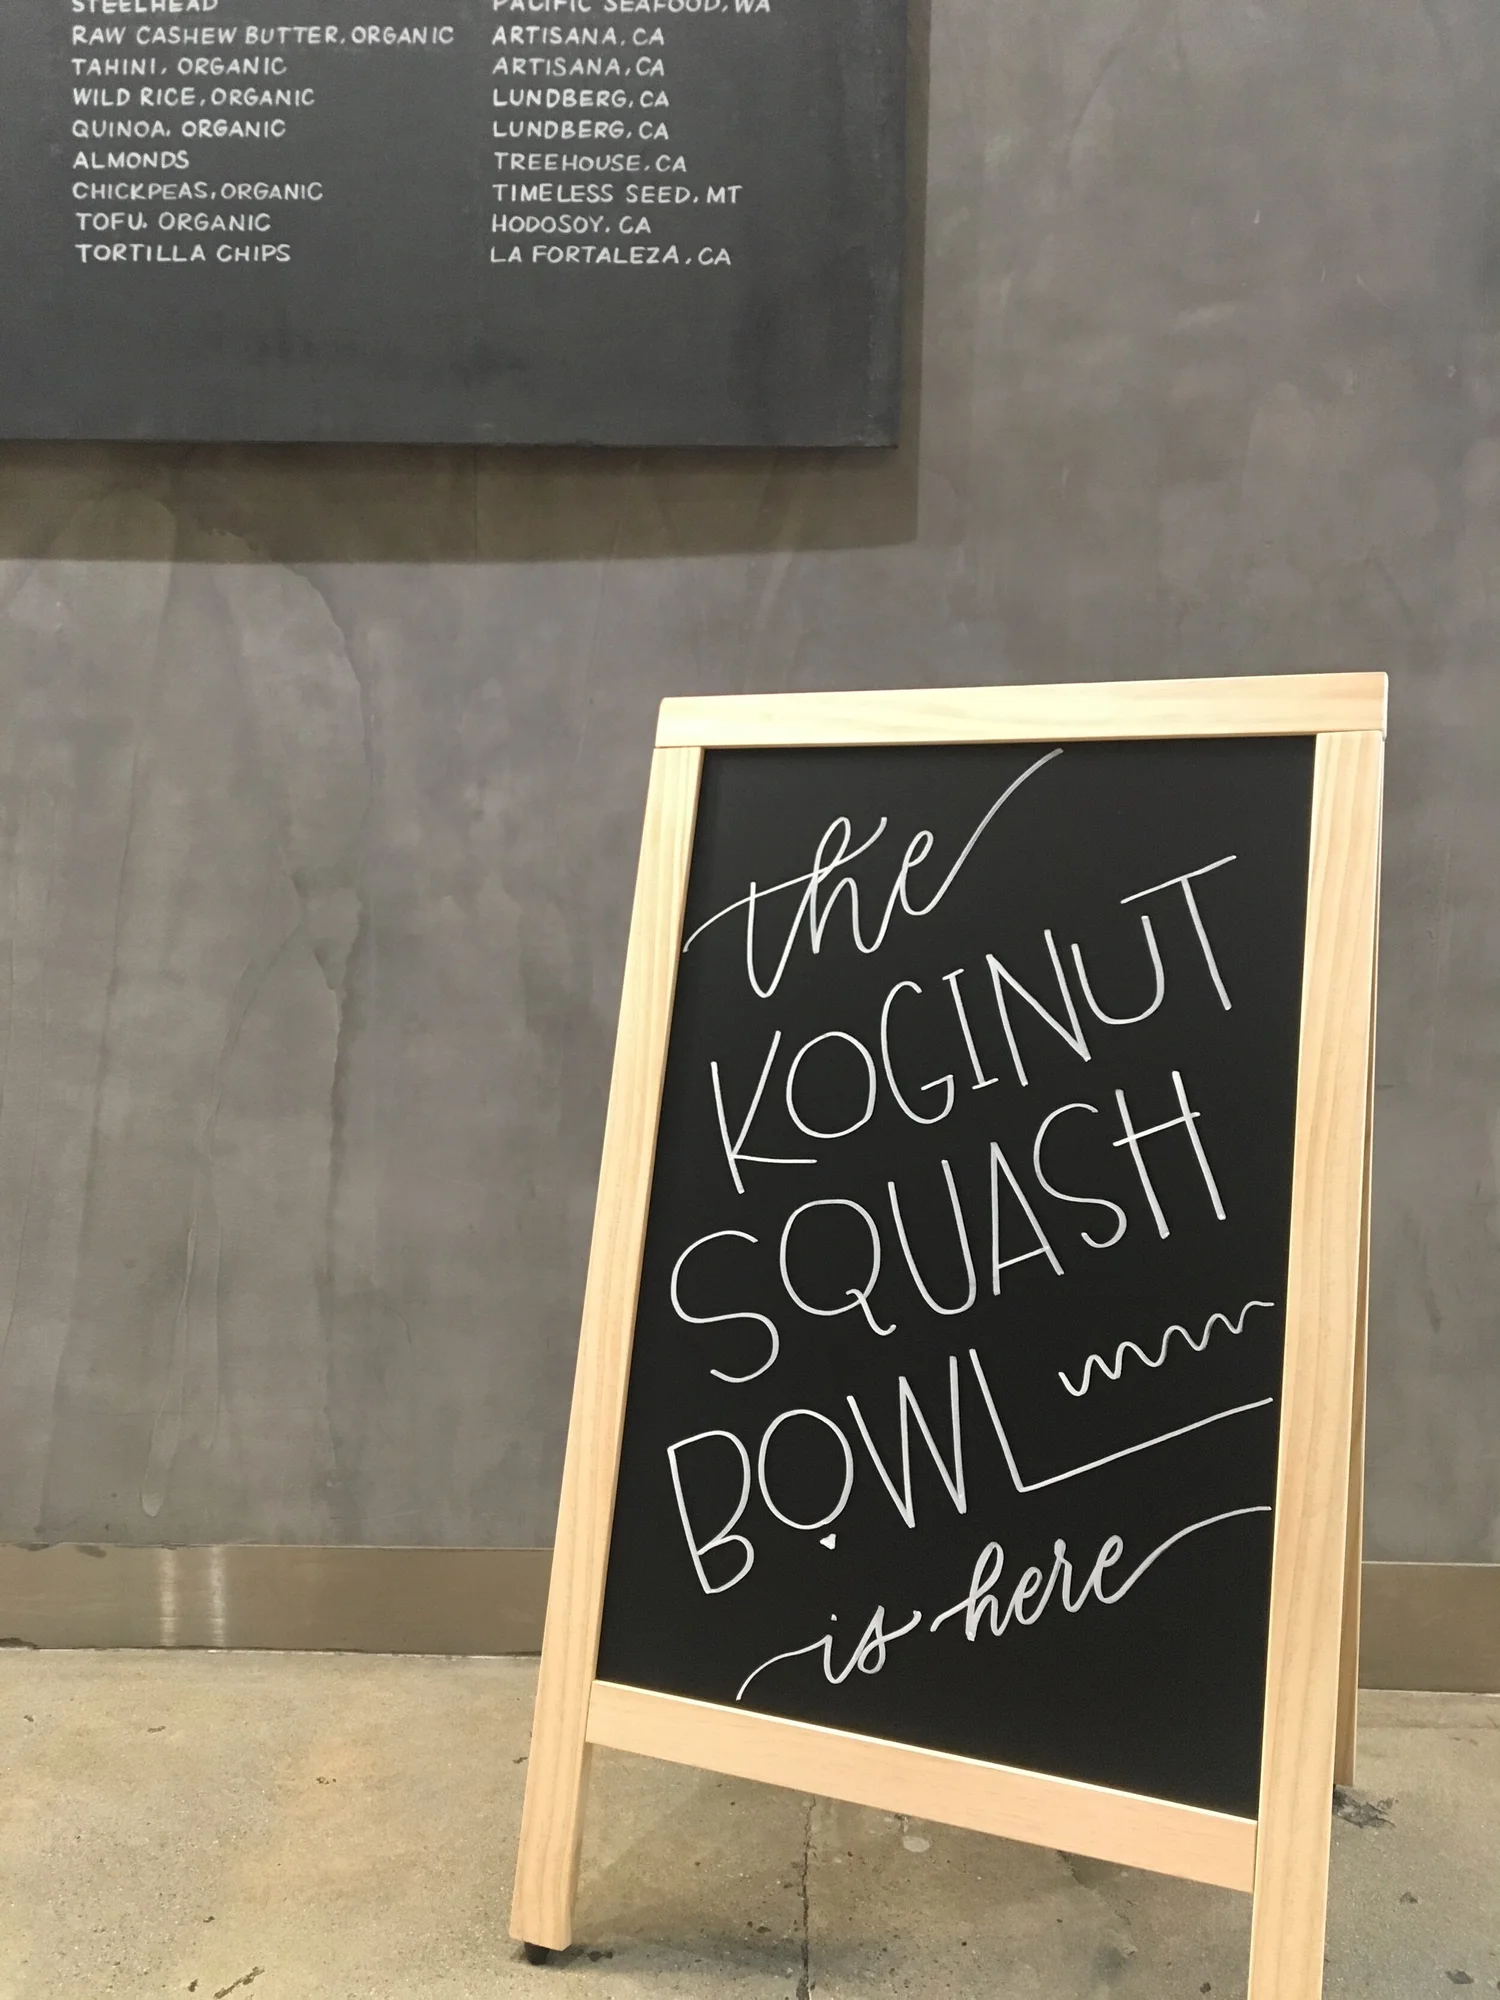 STEELHEAD PACIFIC SEAFOOD, WA
RAW CASHEW BUTTER, ORGANIC ARTISANA, CA
TAHINI, ORGANIC ARTISANA, CA
WILD RICE, ORGANIC LUNDBERG, CA
QUINOA, ORGANIC LUNDBERG, CA
ALMONDS TREEHOUSE, CA
CHICKPEAS, ORGANIC TIMELESS SEED, MT
TOFU, ORGANIC HODOSOY, CA
TORTILLA CHIPS LA FORTALEZA, CA
the
KOGINUT
SQUASH
BOWL
is here